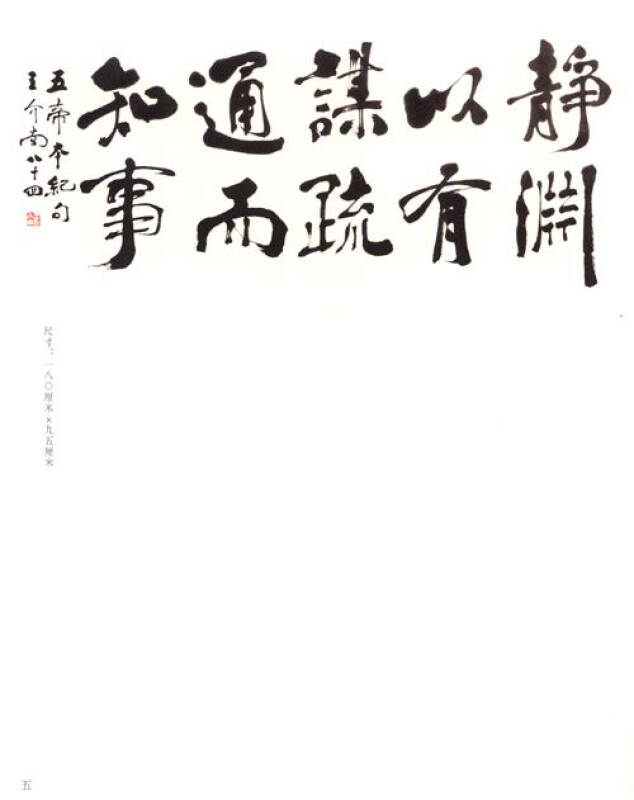 静淵
以有
謀疏
通而
知事
五帝本紀句
王介南八十四
尺寸：一八〇厘米×九五厘米
五